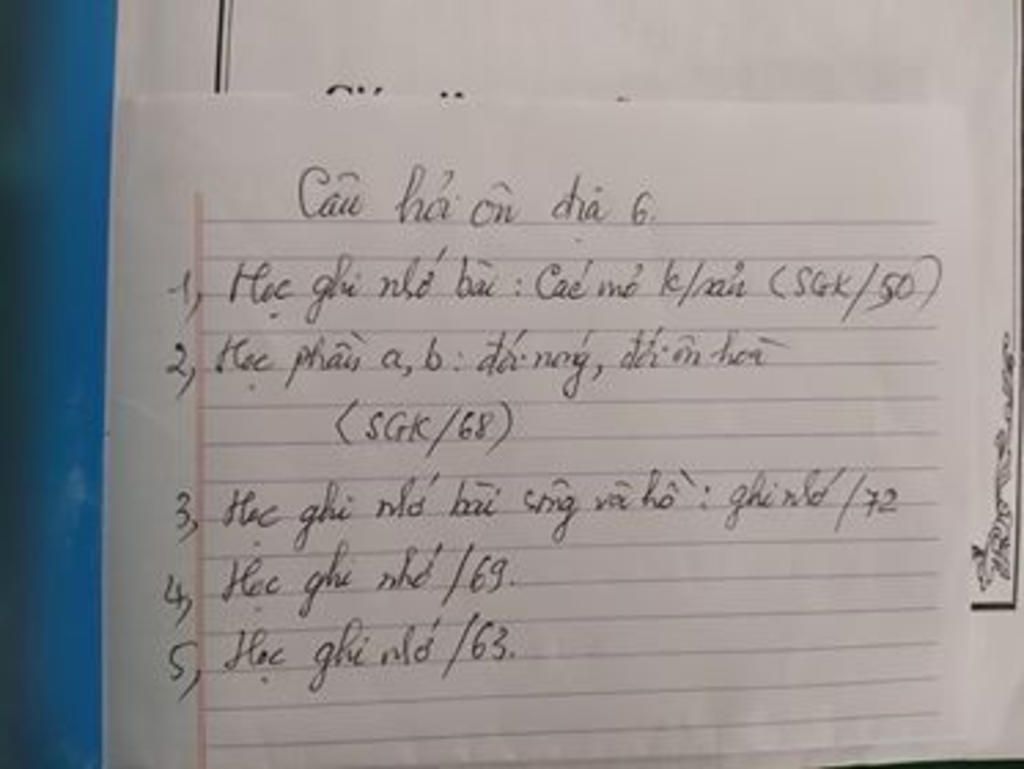 Câu hỏi ôn địa 6.
1, Học ghi nhớ bài : Các mỏ k/sản (SGK/50)
2, Học phần a, b : đới nóng, đới ôn hoà
(SGK/68)
3, Học ghi nhớ bài sông và hồ : ghi nhớ /72
4, Học ghi nhớ /69.
5, Học ghi nhớ /63.